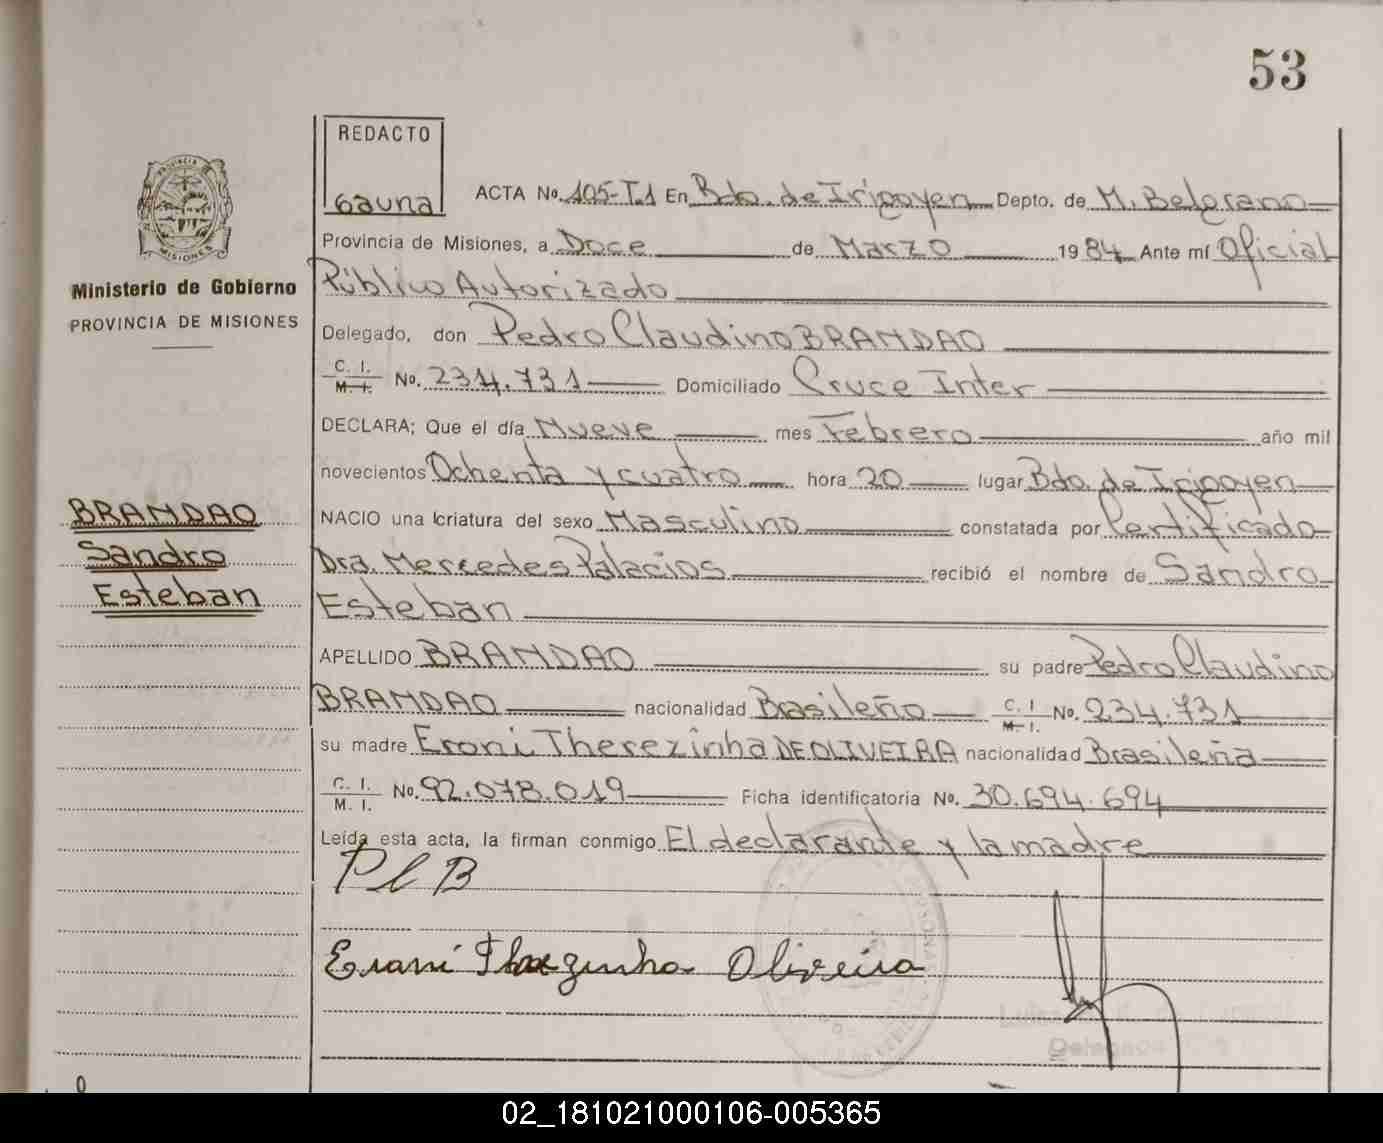 53
REDACTO
Gauna
PROVINCIA
MISIONES
Ministerio de Gobierno
PROVINCIA DE MISIONES
ACTA No. 105-T.1 En Bdo. de Irigoyen Depto. de M. Belgrano
Provincia de Misiones, a Doce de Marzo 1984 Ante mí Oficial
Público Autorizado
Delegado, don Pedro Claudino BRANDAO
C. I. M. I. No. 234.731 Domiciliado Cruce Inter
DECLARA; Que el día Nueve mes Febrero año mil
novecientos Ochenta y cuatro hora 20 lugar Bdo. de Irigoyen
BRANDAO
Sandro
Esteban
NACIO una criatura del sexo Masculino constatada por Certificado
Dra. Mercedes Palacios recibió el nombre de Sandro
Esteban
APELLIDO BRANDAO su padre Pedro Claudino
BRANDAO nacionalidad Brasileño C. I M. I. No. 234.731
su madre Eroni Therezinha DE OLIVEIRA nacionalidad Brasileña
C. I. M. I. No. 92.078.019 Ficha identificatoria No. 30.694.694
Leída esta acta, la firman conmigo El declarante y la madre
P C B
Oliveira
02_181021000106-005365